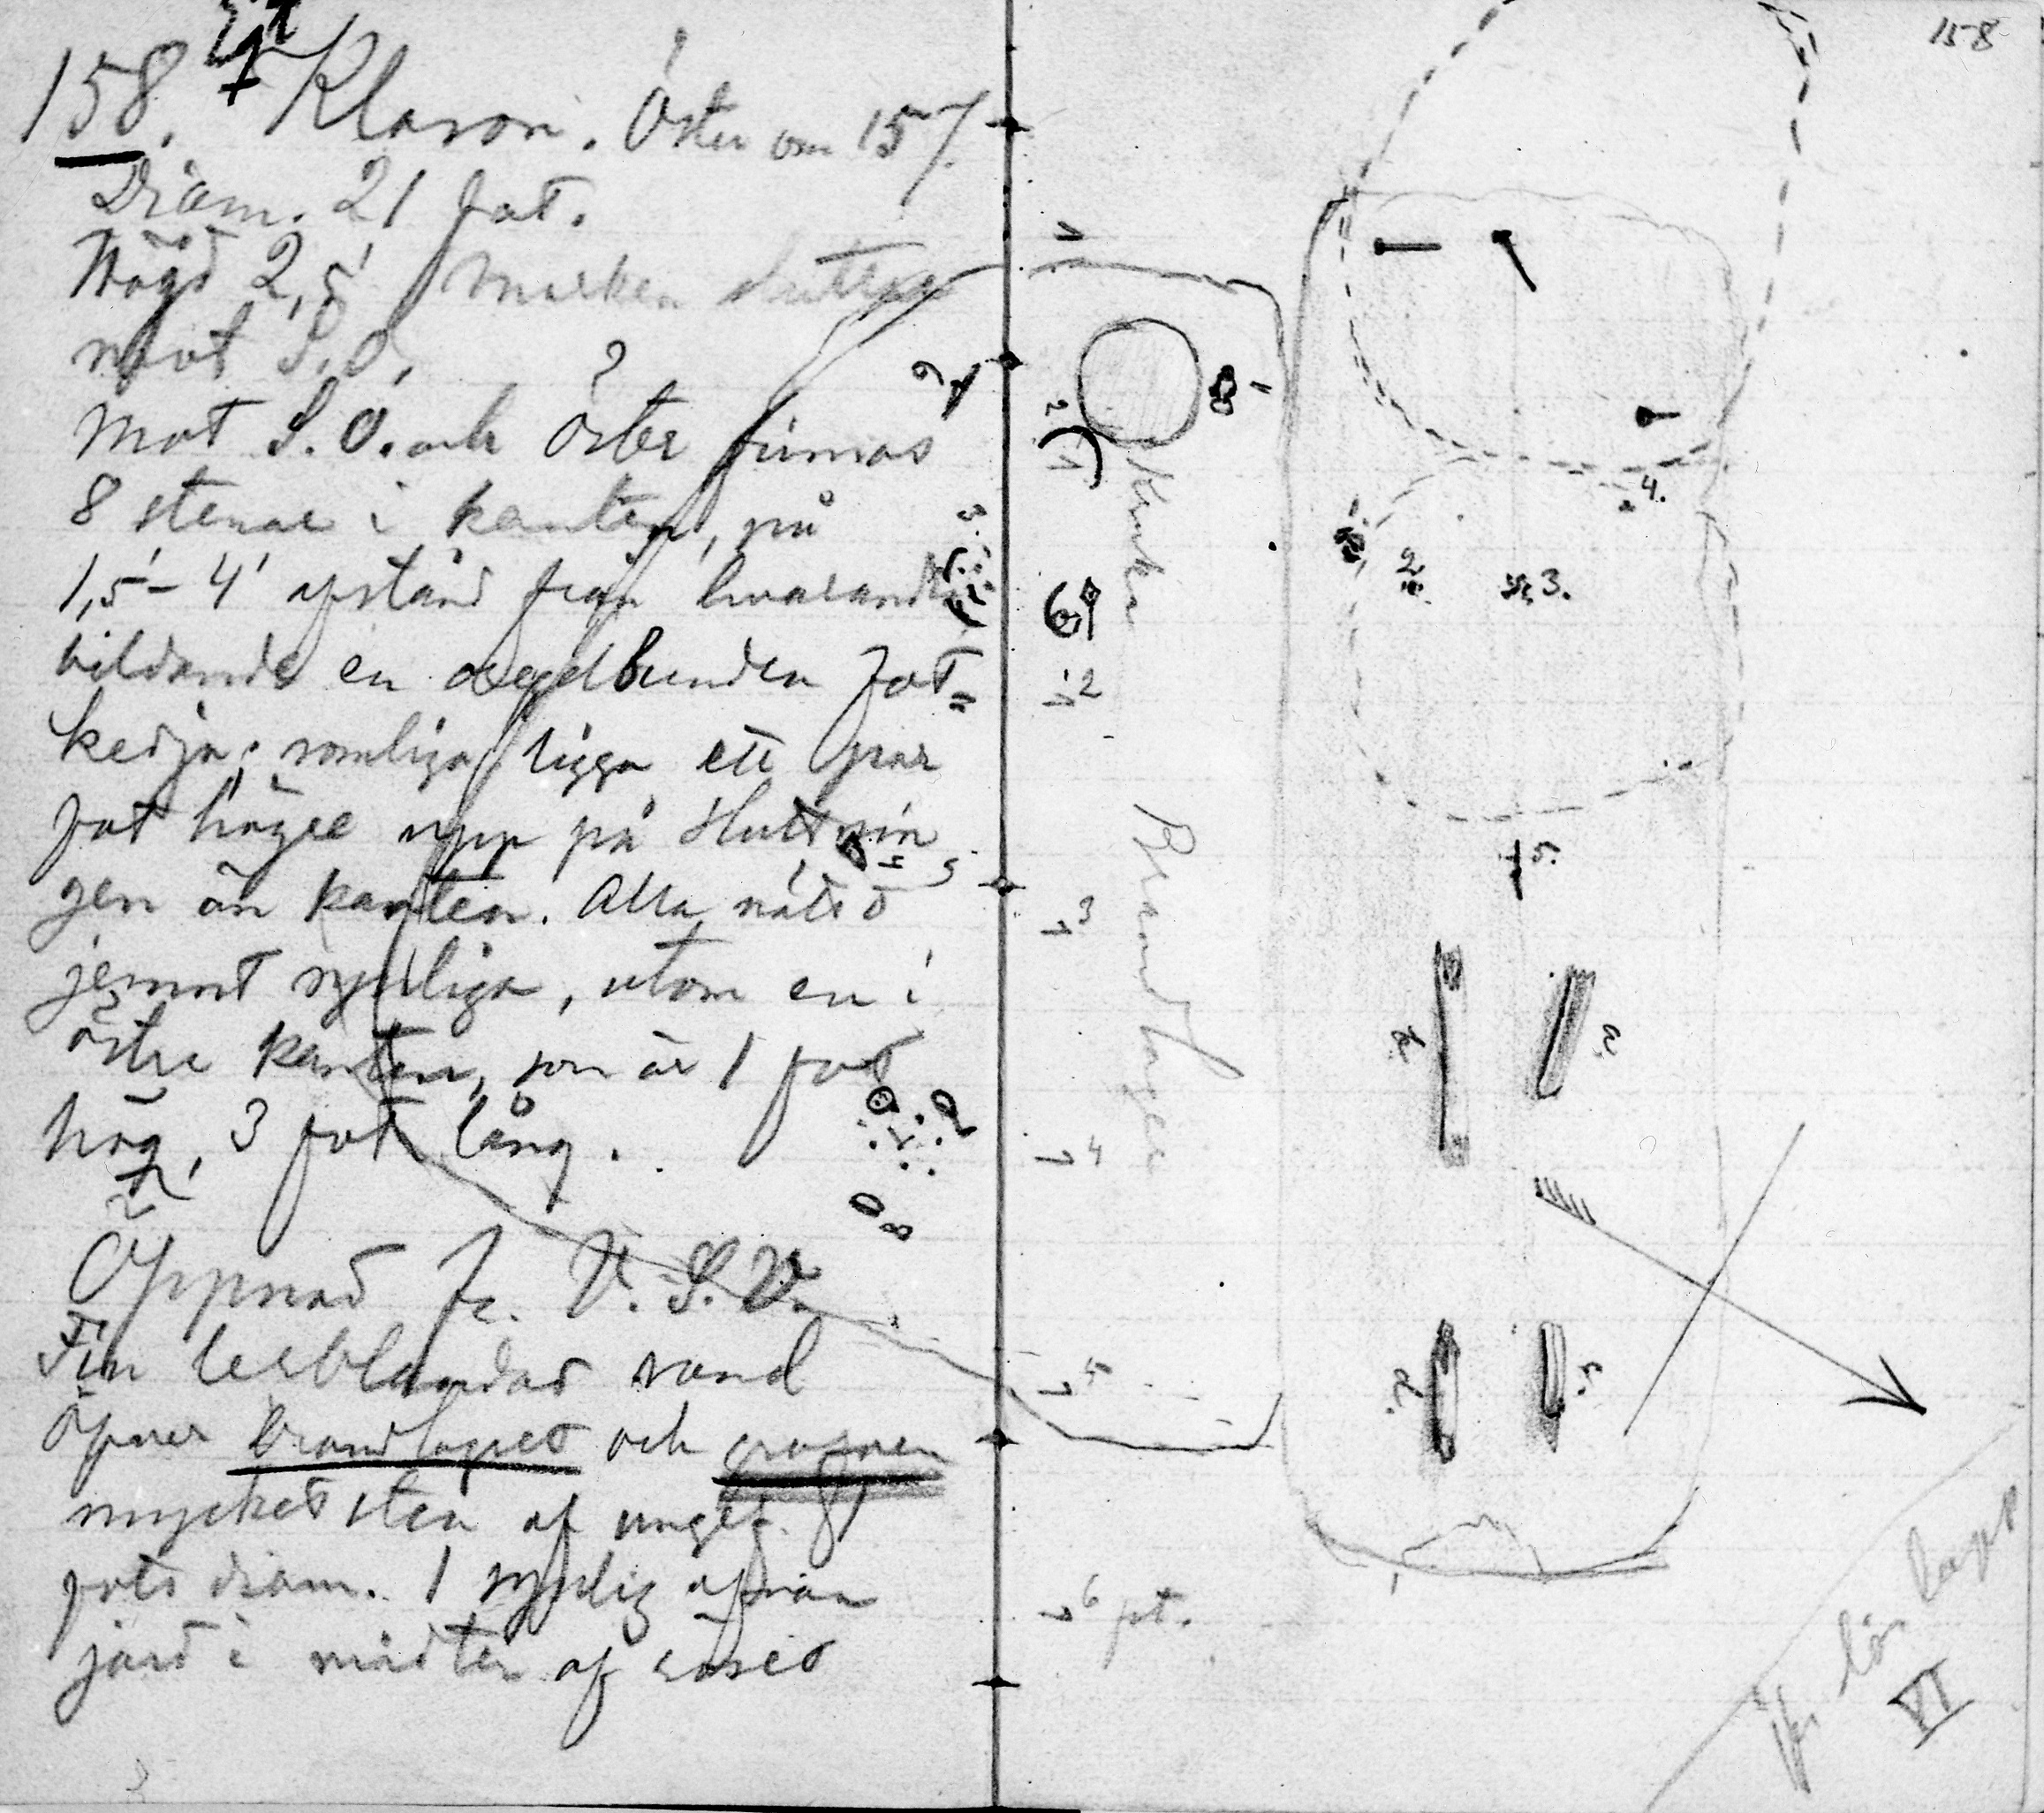 158. Klason. Öster om 157.
Diam. 21 fot.
Högd 2,5' Marken sluttar
mot S.O.
Mot S.O. och Öster finnas
8 stenar i kanten, på
1,5'-4' afstånd från hvarandra
bildande en oregelbunden fot-
kedja; somliga ligga ett par
fot högre upp på sluttnin
gen än kanten. Alla nätt o
jemnt synliga, utom en i
östra kanten, som är 1 fot
hög, 3 fot lång.
Öppnad fr. V.S.V.
Fin lerblandad sand
öfver brandlagret och grafven
mycket sten af ungef. 1
fots diam. 1 synlig ofvan
jord i midten af röset
158
1
2
Kruka
1
2
3
4
5
6 ft.
Brandlager
1.
2.
3.
4.
5.
Jfr lös lapp
VI